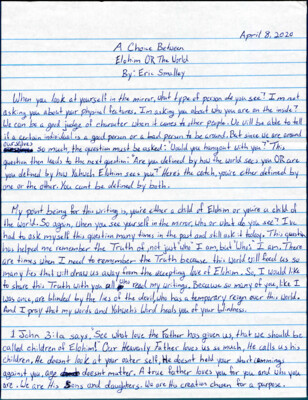 April 8, 2020
A Choice Between
Elohim OR The World
By: Eric Smalley
When you look at yourself in the mirror, what type of person do you see? I'm not
asking you about your physical features. I'm asking you about who you are on the inside?
We can be a good judge of character when it comes to other people. We will be able to tell
if a certain individual is a good person or a bad person to be around. But since we are around
ourselves so much, the question must be asked: Would you hangout with you? This
question then leads to the next question: "Are you defined by how the world sees you OR are
you defined by how Yahweh Elohim sees you?" Here's the catch, you're either defined by
one or the other. You can't be defined by both.
My point being for this writing is, you're either a child of Elohim or you're a child of
the world. So again, when you see yourself in the mirror, who or what do you see? I've
had to ask myself this question many times in the past and still ask it today. This question
has helped me remember the Truth of not just "who" I am but "Who's" I am. There
are times when I need to remember the Truth because this world will feed us so
many lies that will draw us away from the accepting love of Elohim. So, I would like
to share this Truth with you all who read my writing. Because so many of you, like I
was once, are blinded by the lies of the devil, who has a temporary reign over this world.
And I pray that my words and Yahweh's Word heals you of your blindness.
I John 3:1a says, "See what love the Father has given us, that we should be
called children of Elohim!" Our Heavenly Father loves us so much. He calls us his
children. He doesn't look at your outer self. He doesn't hold your short comings
against you, age doesn't matter. A true father loves you for you and who you
are. We are His Sons and daughters. We are His creation chosen for a purpose.